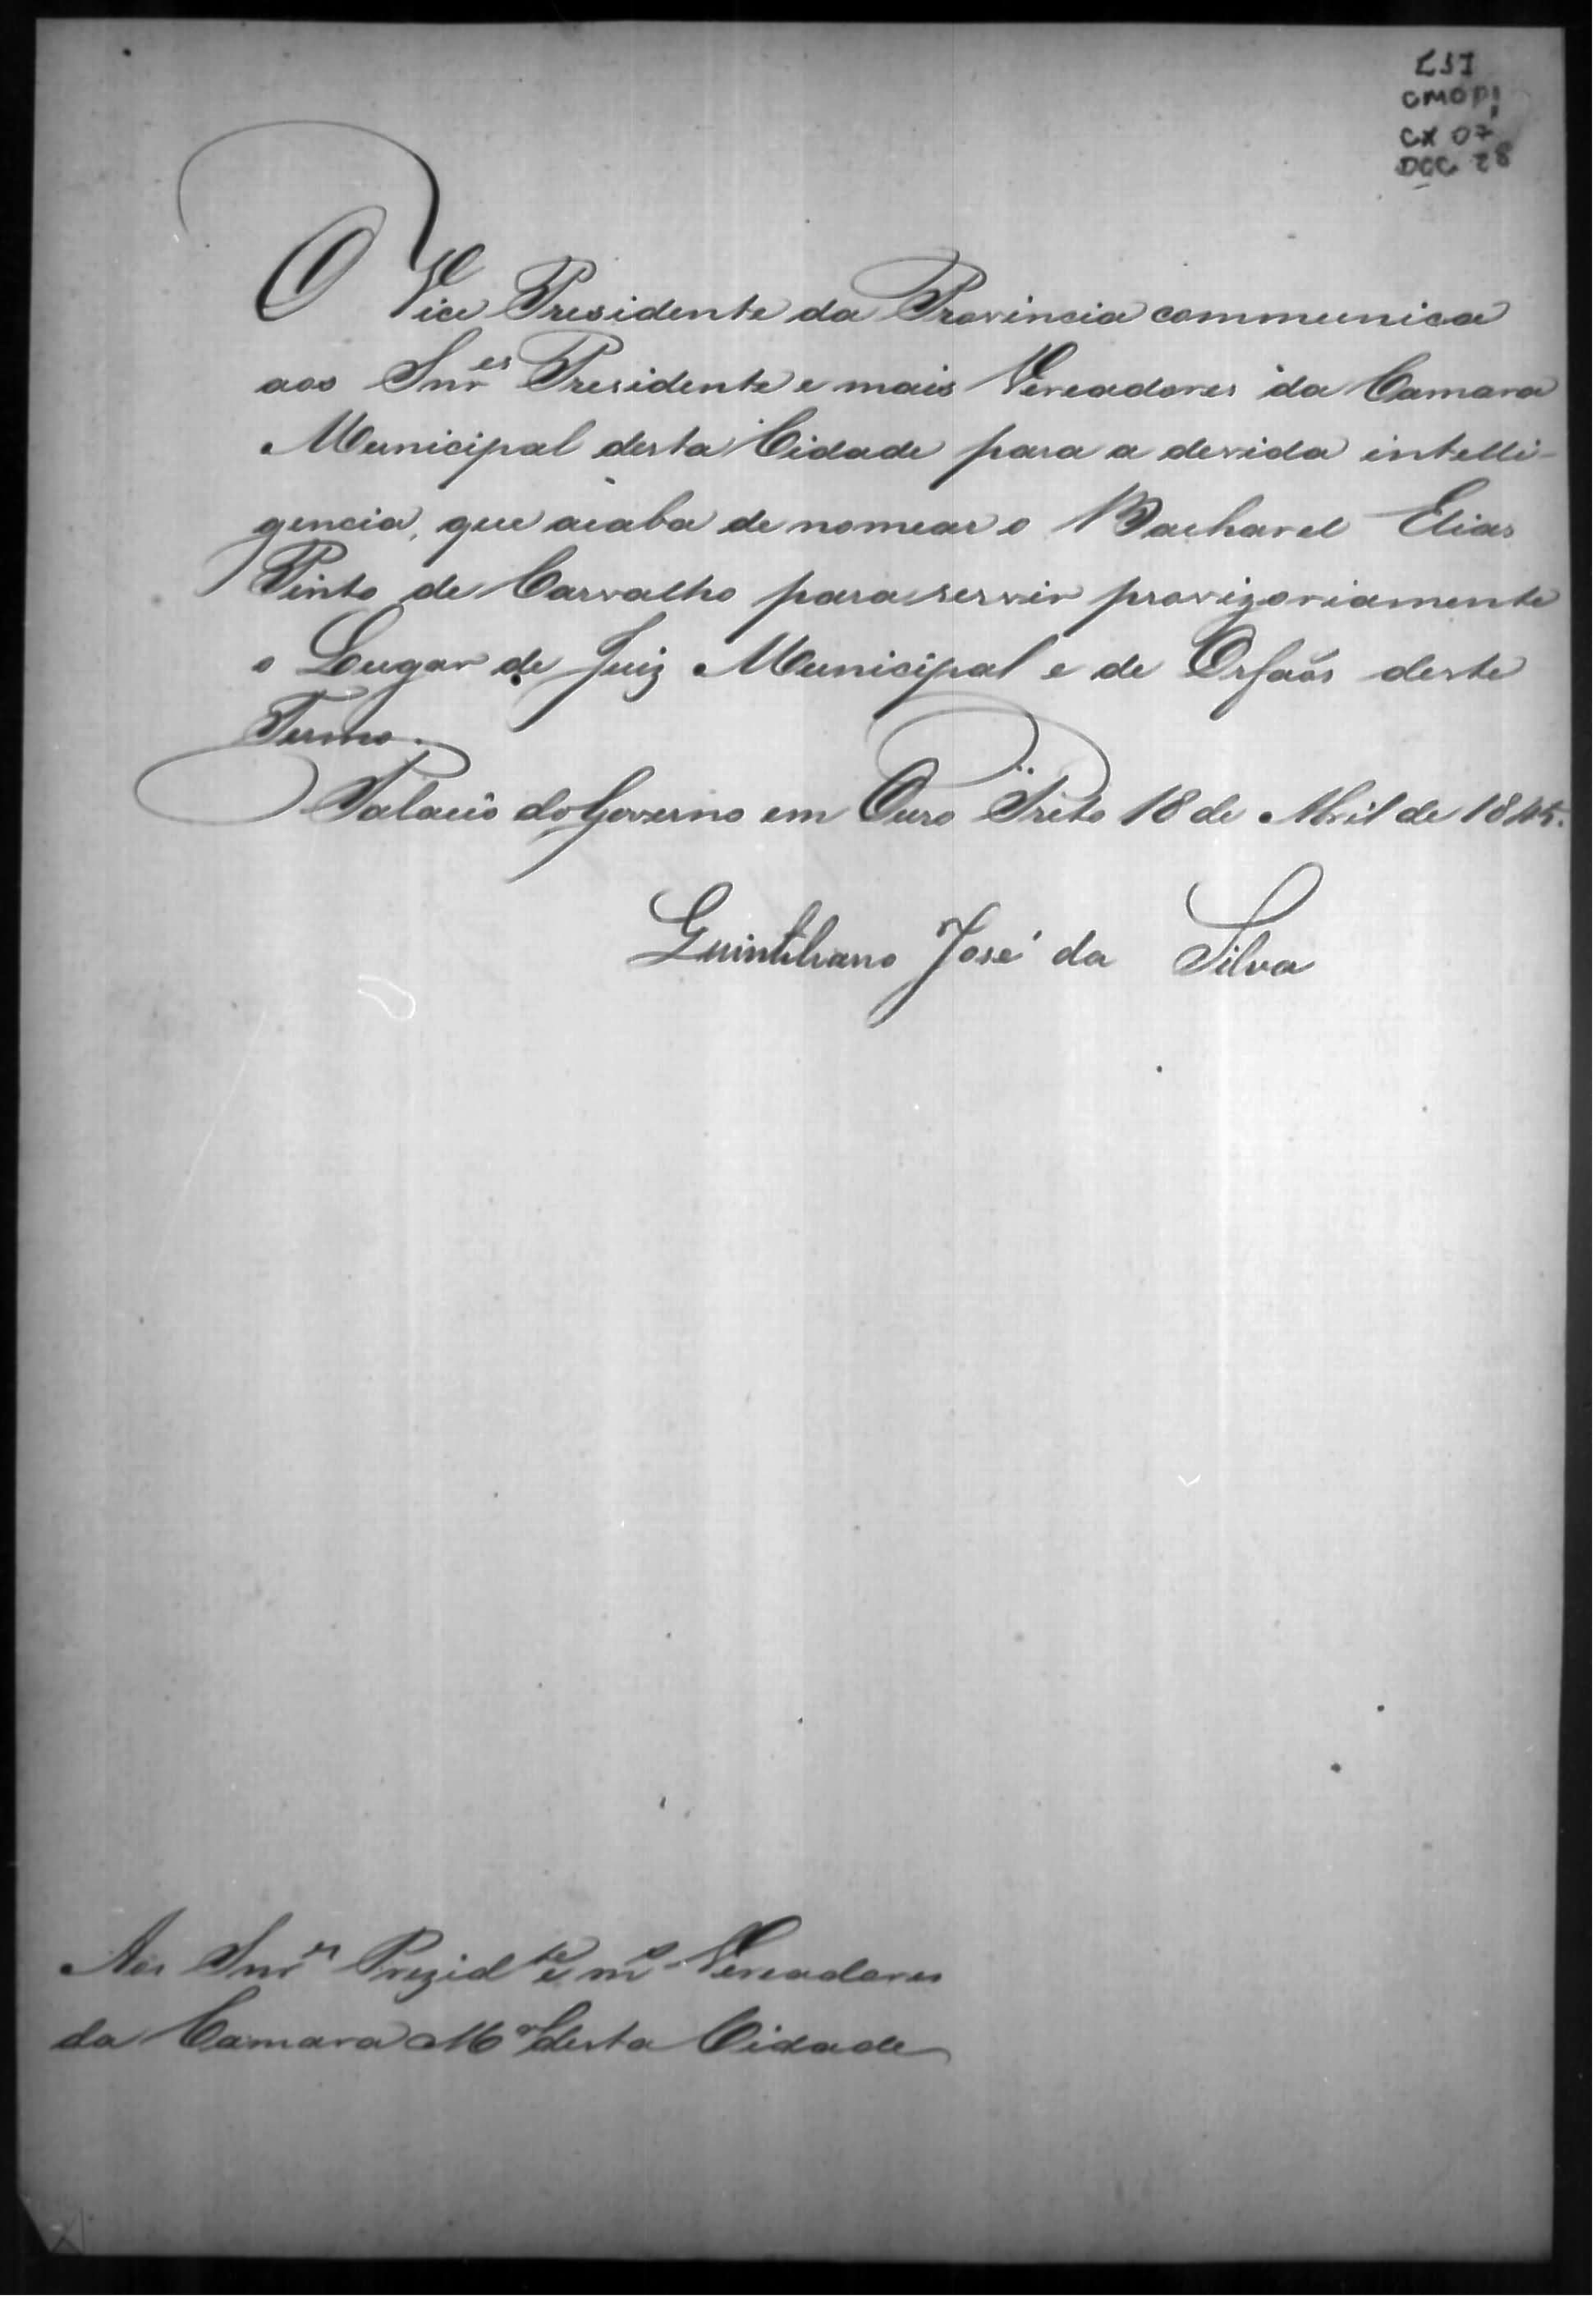 CMOP
CX 07
DOC 28
O Vice Presidente da Provincia communica
aos Snr.es Presidente e mais Vereadores da Camara
Municipal desta Cidade para a devida intelli-
gencia, que acaba de nomear o Bacharel Elias
Pinto de Carvalho para servir provizoriamente
o Lugar de Juiz Municipal e de Orfaõs deste
Termo.
Palacio do Governo em Ouro Preto 18 de Abril de 1845.
Quintiliano José da Silva
Aos Snr.es Prezid.te e m.s Vereadores
da Camara M.al desta Cidade